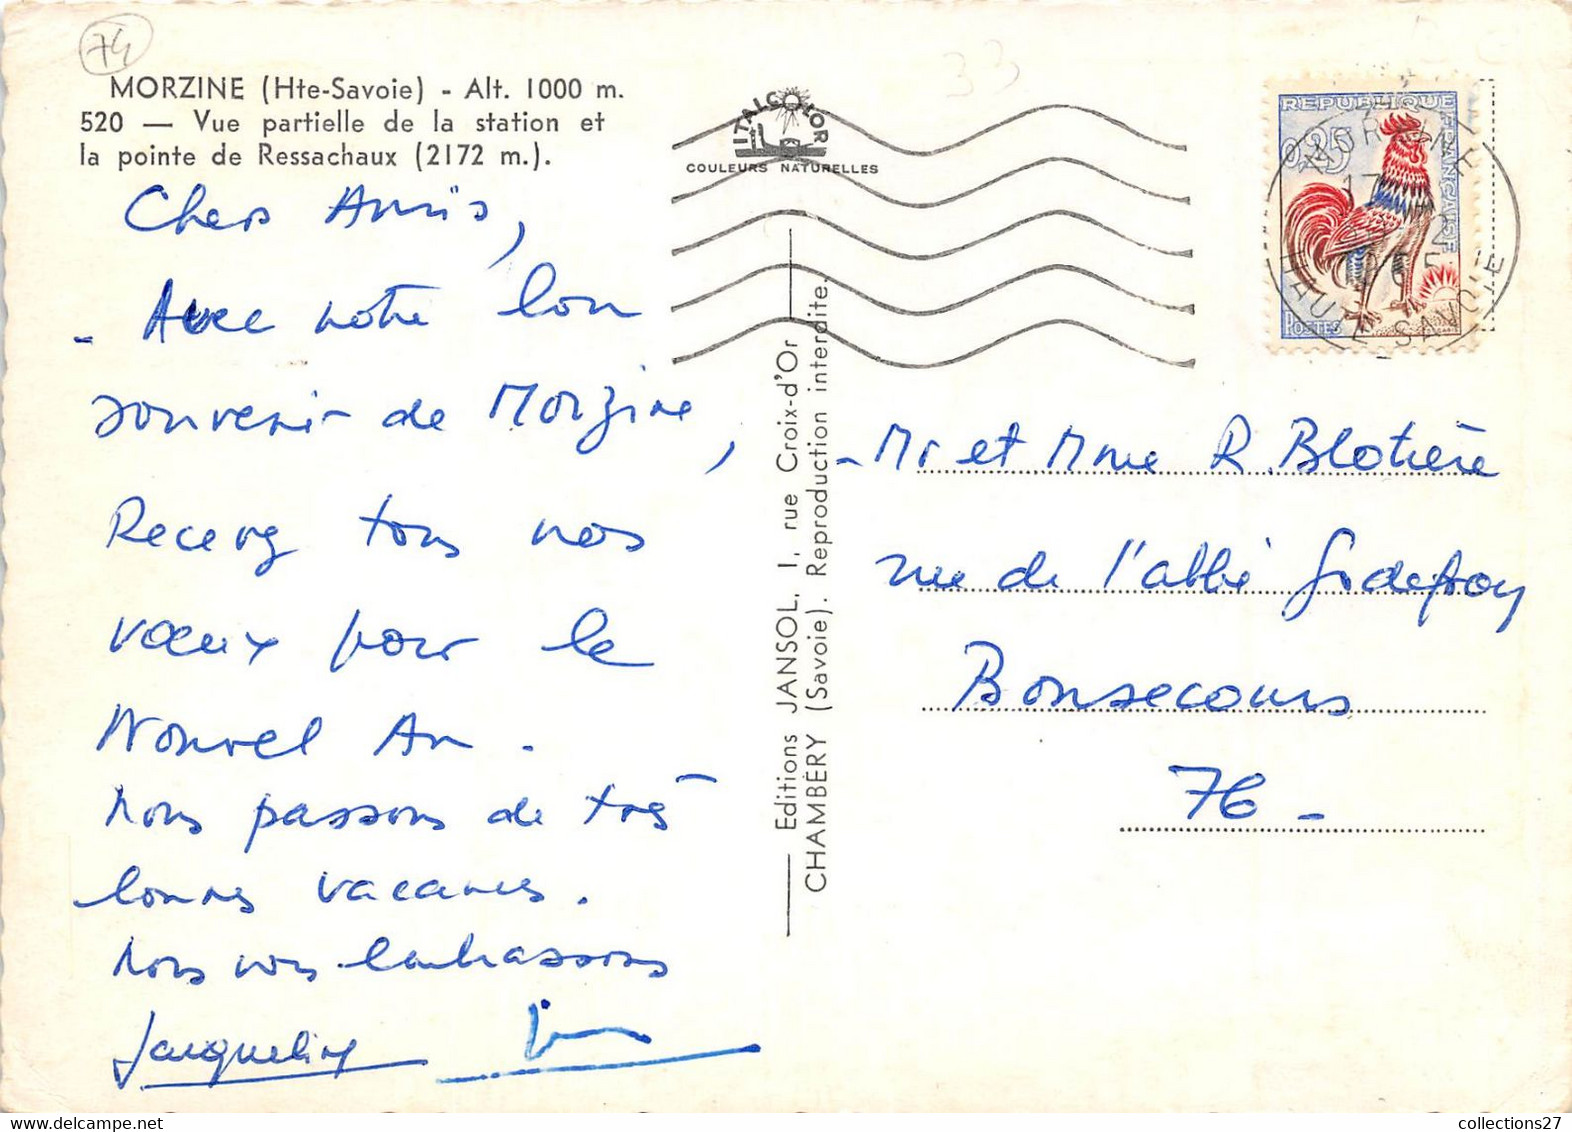 74
33
MORZINE (Hte-Savoie) - Alt. 1000 m.
520 — Vue partielle de la station et
la pointe de Ressachaux (2172 m.).
ITALCOLOR
COULEURS NATURELLES
REPUBLIQUE FRANÇAISE
0,25
POSTES
MORZINE
HAUTE SAVOIE
Chers Amis,
- Avec notre bon
souvenir de Morzine,
Recevez tous nos
vœux pour le
Nouvel An.
Nous passons de très
bonnes vacances.
Nous vous embrassons
Jacqueline
Editions JANSOL, 1, rue Croix-d'Or
CHAMBÉRY (Savoie). Reproduction interdite.
- Mr et Mme R. Blotière
rue de l'abbé Godefroy
Bonsecours
76 -
collections27